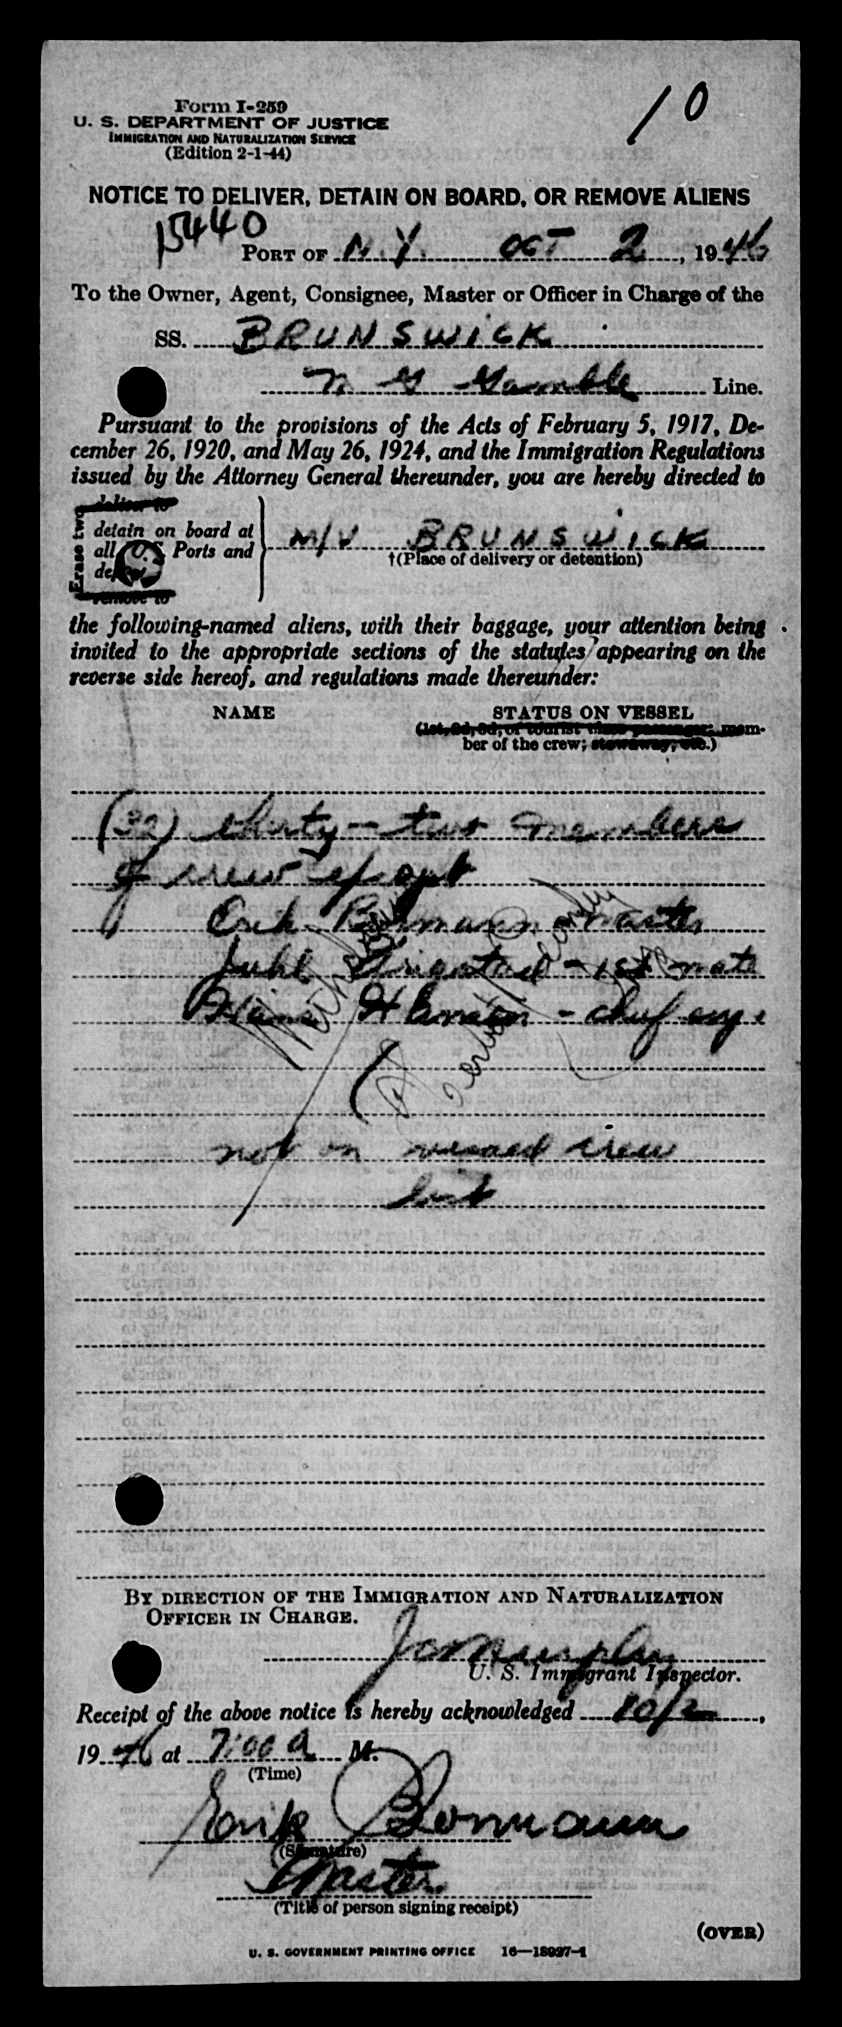 10
Form I-259
U. S. DEPARTMENT OF JUSTICE
IMMIGRATION AND NATURALIZATION SERVICE
(Edition 2-1-44)
NOTICE TO DELIVER, DETAIN ON BOARD, OR REMOVE ALIENS
15440
PORT OF N.Y. OCT 2, 1946
To the Owner, Agent, Consignee, Master or Officer in Charge of the
SS. BRUNSWICK
N G Gamble Line.
Pursuant to the provisions of the Acts of February 5, 1917, De-
cember 26, 1920, and May 26, 1924, and the Immigration Regulations
issued by the Attorney General thereunder, you are hereby directed to
Erase two
deliver to
detain on board at
all U.S. Ports and
M/V BRUNSWICK
†(Place of delivery or detention)
remove to
the following-named aliens, with their baggage, your attention being
invited to the appropriate sections of the statutes appearing on the
reverse side hereof, and regulations made thereunder:
NAME STATUS ON VESSEL
(1st, 2d, 3d, or tourist class passenger; mem-
ber of the crew; stowaway, etc.)
(32) thirty-two members
of crew except
Erik Bormann master
Juhl - 1st mate
Hans - chief eng.
not on visaed crew
list
BY DIRECTION OF THE IMMIGRATION AND NATURALIZATION
OFFICER IN CHARGE.
J Murphy
U. S. Immigrant Inspector.
Receipt of the above notice is hereby acknowledged 10/2,
1946 at 7:00 A M.
(Time)
Erik Bormann
(Signature)
Master
(Title of person signing receipt)
(OVER)
U. S. GOVERNMENT PRINTING OFFICE 16—18937-1